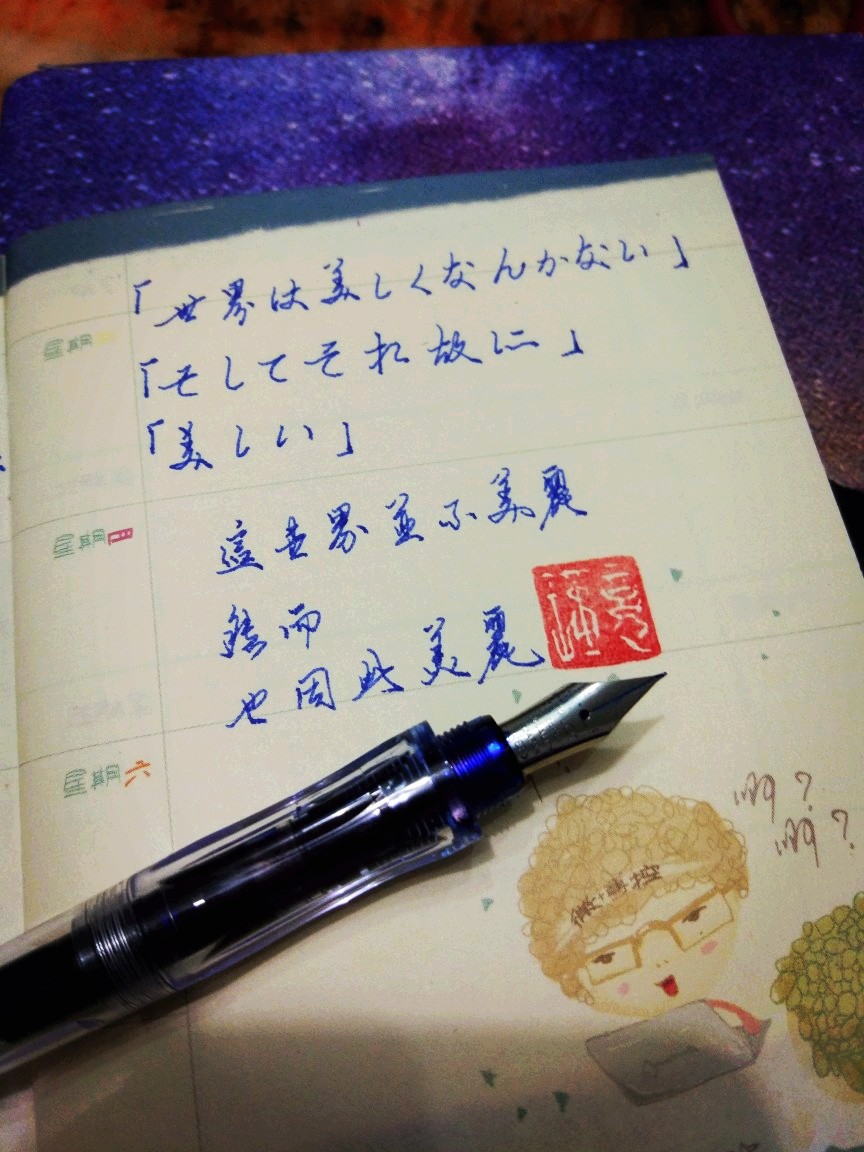 「世界は美しくなんかない」
星期
「そしてそれ故に」
「美しい」
這世界並不美麗
星期日
然而
也因此美麗
星期六
啊?
啊?